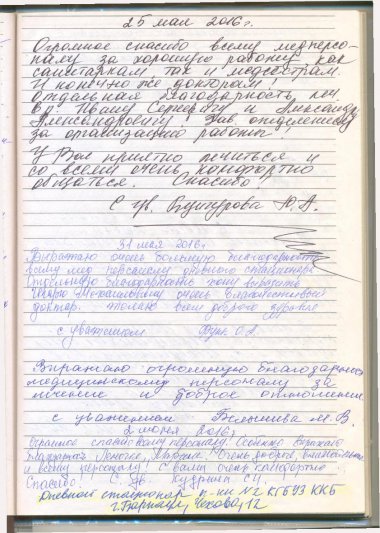 25 мая 2016г.
Огромное спасибо всему медперсо-
налу за хорошую работу, как
санитаркам, так и медсёстрам.
И конечно же докторам!
Отдельная благодарность леч.
вр. Ивану Сергеевичу и Александру
Александровичу Зав. отделением
за организацию работы!
У Вас приятно лечиться и
со всеми очень комфортно
общаться. Спасибо!
С ув. Ю. А.
31 мая 2016г
Выражаю очень большую благодарность
всему мед персоналу дневного стационара
Отдельную благодарность хочу выразить
очень внимательный
доктор. желаю всем доброго здоровья
с уважением О. А.
Выражаю огромную благодарность
медицинскому персоналу за
лечение и доброе отношение
с уважением М. В.
2 июня 2016г.
Огромное спасибо всему персоналу. Особенно выражаю
Очень добрые, внимательные
и всему персоналу! С вами очень комфортно.
Спасибо! С ув.
Дневной стационар п-ки №2 КГБУЗ ККБ
г. Барнаул, Чехова, 12